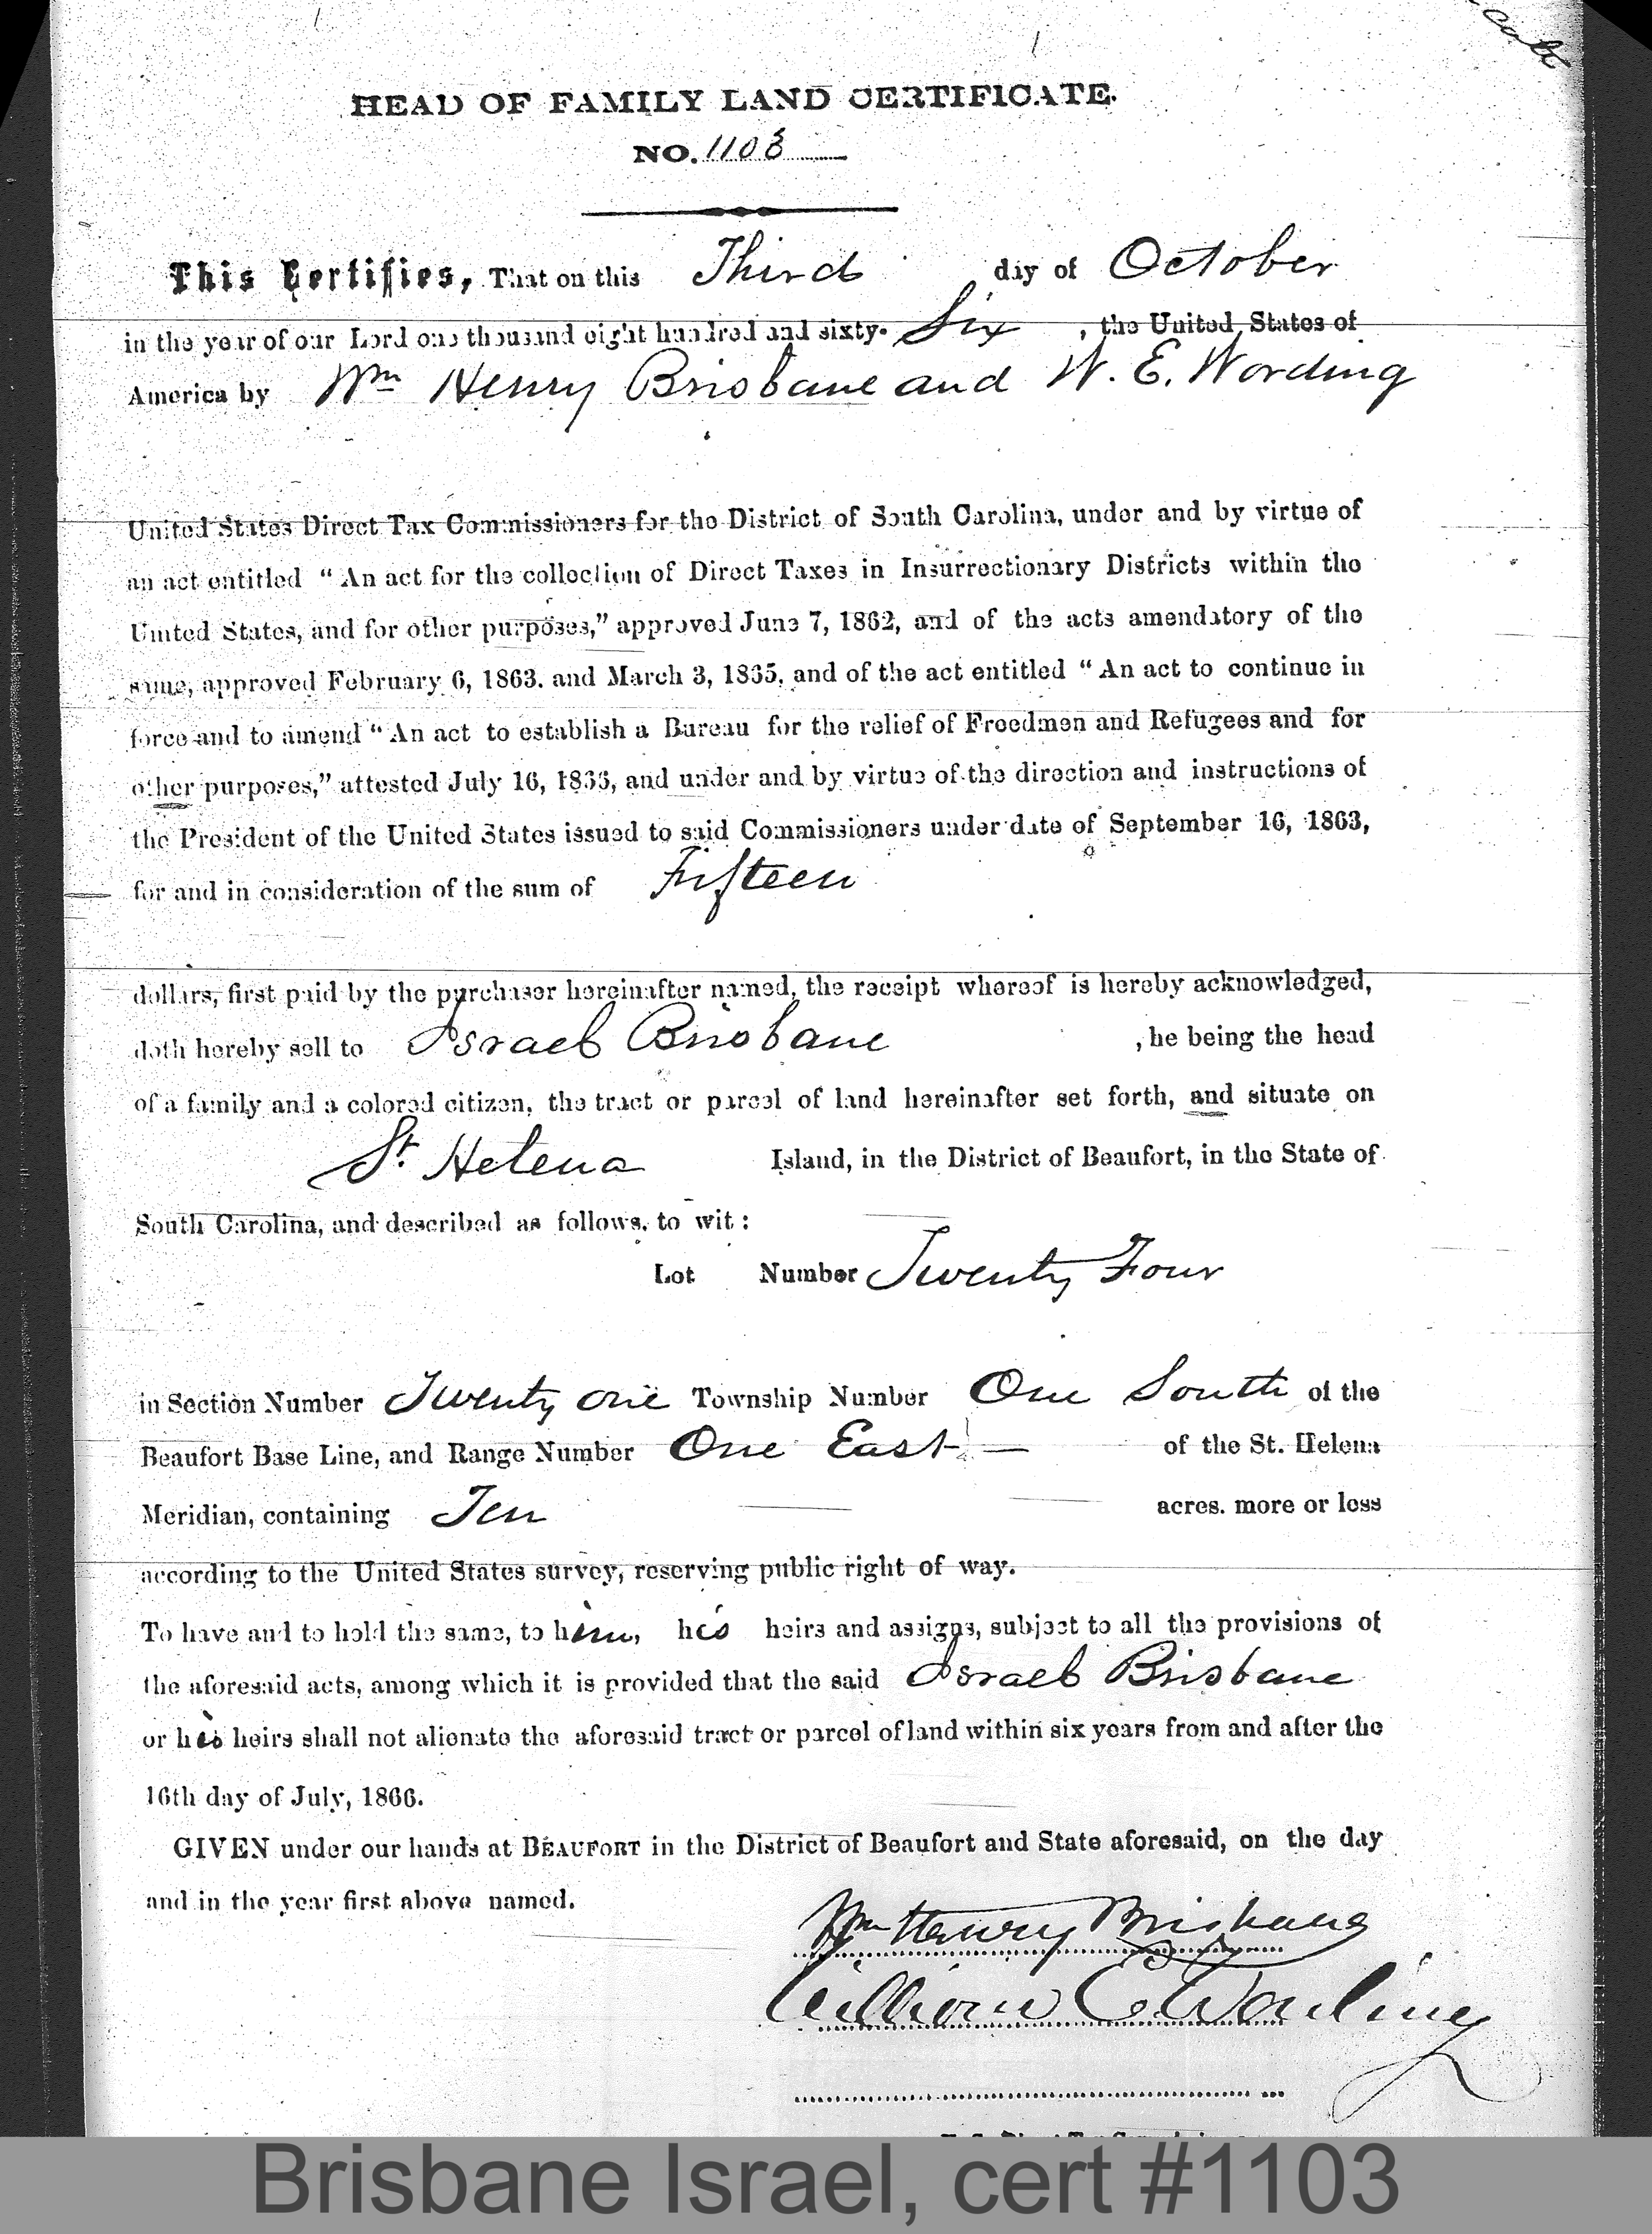 Cook
HEAD OF FAMILY LAND CERTIFICATE.
NO. 1103
This Certifies, That on this Third day of October
in the year of our Lord one thousand eight hundred and sixty- Six , the United States of
America by Wm Henry Brisbane and W. E. Wording
United States Direct Tax Commissioners for the District of South Carolina, under and by virtue of
an act entitled "An act for the collection of Direct Taxes in Insurrectionary Districts within the
United States, and for other purposes," approved June 7, 1862, and of the acts amendatory of the
same, approved February 6, 1863. and March 3, 1865, and of the act entitled "An act to continue in
force and to amend "An act to establish a Bureau for the relief of Freedmen and Refugees and for
other purposes," attested July 16, 1866, and under and by virtue of the direction and instructions of
the President of the United States issued to said Commissioners under date of September 16, 1863,
for and in consideration of the sum of Fifteen
dollars, first paid by the purchaser hereinafter named, the receipt whereof is hereby acknowledged,
doth hereby sell to Israel Brisbane , he being the head
of a family and a colored citizen, the tract or parcel of land hereinafter set forth, and situate on
St. Helena Island, in the District of Beaufort, in the State of
South Carolina, and described as follows, to wit:
Lot Number Twenty Four
in Section Number Twenty one Township Number One South of the
Beaufort Base Line, and Range Number One East — of the St. Helena
Meridian, containing Ten acres. more or less
according to the United States survey, reserving public right of way.
To have and to hold the same, to him, his heirs and assigns, subject to all the provisions of
the aforesaid acts, among which it is provided that the said Israel Brisbane
or his heirs shall not alienate the aforesaid tract or parcel of land within six years from and after the
16th day of July, 1866.
GIVEN under our hands at BEAUFORT in the District of Beaufort and State aforesaid, on the day
and in the year first above named.
Wm Henry Brisbane
William E. Wording
Brisbane Israel, cert #1103